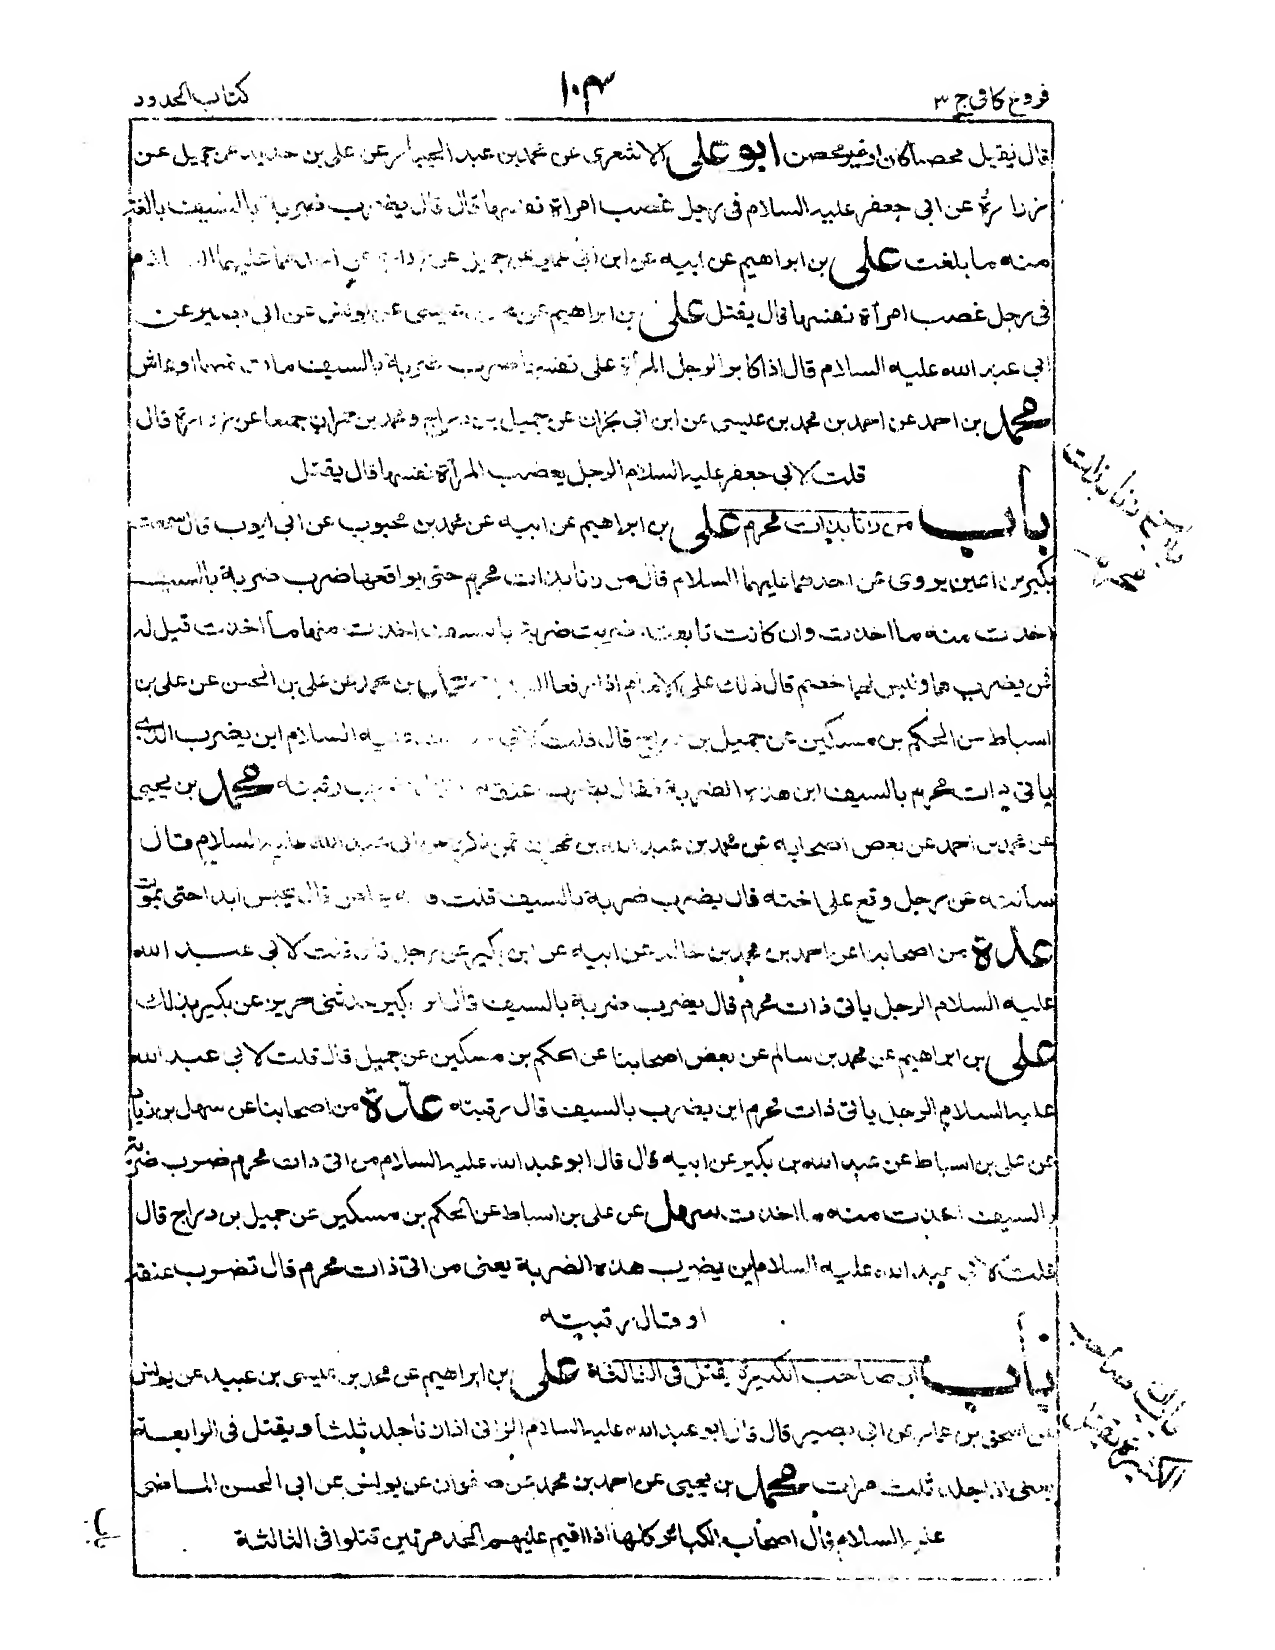 فروع کافی ج ۳
۱۰۳
کتاب الحدود
قال یقتل محصنا کان او غیر محصن ابو علی الاشعری عن محمد بن عبد الجبار عن علی بن حدید عن جمیل عن
زرارة عن ابی جعفر علیه السلام فی رجل غصب امرأة نفسها قال قال یضرب ضربة بالسیف بالغة
منه ما بلغت علی بن ابراهیم عن ابیه عن ابن ابی عمیر عن جمیل عن
فی رجل غصب امرأة نفسها قال یقتل علی بن ابراهیم عن محمد بن عیسی عن یونس عن ابی بصیر عن
ابی عبد الله علیه السلام قال اذا کابر الرجل المرأة علی نفسها ضرب ضربة بالسیف مات منها او عاش
محمد بن احمد عن احمد بن محمد بن عیسی عن ابن ابی نجران عن جمیل بن دراج و محمد بن حمران جمیعا عن زرارة قال
قلت لابی جعفر علیه السلام الرجل یغصب المرأة نفسها قال یقتل
باب من زنا بذات محرم علی بن ابراهیم عن ابیه عن محمد بن محبوب عن ابی ایوب قال سمعت
بکیر بن اعین یروی عن احدهما علیهما السلام قال من زنا بذات محرم حتی یواقعها ضرب ضربة بالسیف
اخذت منه ما اخذت و ان کانت تابعته ضربت ضربة بالسیف اخذت منها ما اخذت قیل له
فمن یضربهما و لیس لهما خصم قال ذلک علی الامام اذا رفعا الیه بن محمد عن علی بن الحسن عن علی بن
اسباط عن الحکم بن مسکین عن جمیل بن دراج قال قلت لابی علیه السلام این یضرب الذی
یاتی ذات محرم بالسیف این هذه الضربة فقال یضرب عنقه رقبته محمد بن یحیی
عن محمد بن احمد عن بعض اصحابه عن محمد بن عبد الله بن عمن ذکره عن ابی عبد الله علیه السلام قال
سألته عن رجل وقع علی اخته قال یضرب ضربة بالسیف قلت قال یحبس ابدا حتی یموت
عدة من اصحابنا عن احمد بن محمد بن خالد عن ابیه عن ابن بکیر عن رجل قال قلت لابی عبد الله
علیه السلام الرجل یاتی ذات محرم قال یضرب ضربة بالسیف قال بکیر حدثنی حریز عن بکیر بذلک
علی بن ابراهیم عن محمد بن سالم عن بعض اصحابنا عن الحکم بن مسکین عن جمیل قال قلت لابی عبد الله
علیه السلام الرجل یاتی ذات محرم این یضرب بالسیف قال رقبته عدة من اصحابنا عن سهل بن زیاد
عن علی بن اسباط عن عبد الله بن بکیر عن ابیه قال قال ابو عبد الله علیه السلام من اتی ذات محرم ضرب ضربة
بالسیف اخذت منه ما اخذت سهل عن علی بن اسباط عن الحکم بن مسکین عن جمیل بن دراج قال
قلت لابی عبد الله علیه السلام این یضرب هذه الضربة یعنی من اتی ذات محرم قال تضرب عنقه
او قال رقبته
باب ان صاحب الکبیرة یقتل فی الثالثة علی بن ابراهیم عن محمد بن عیسی بن عبید عن یونس
عن اسحق بن عمار عن ابی بصیر قال قال ابو عبد الله علیه السلام الزانی اذا زنا جلد ثلثا و یقتل فی الرابعة
یعنی اذا جلد ثلث مرات محمد بن یحیی عن احمد بن محمد عن صفوان عن یونس عن ابی الحسن الماضی
علیه السلام قال اصحاب الکبائر کلها اذا اقیم علیهم الحد مرتین قتلوا فی الثالثة